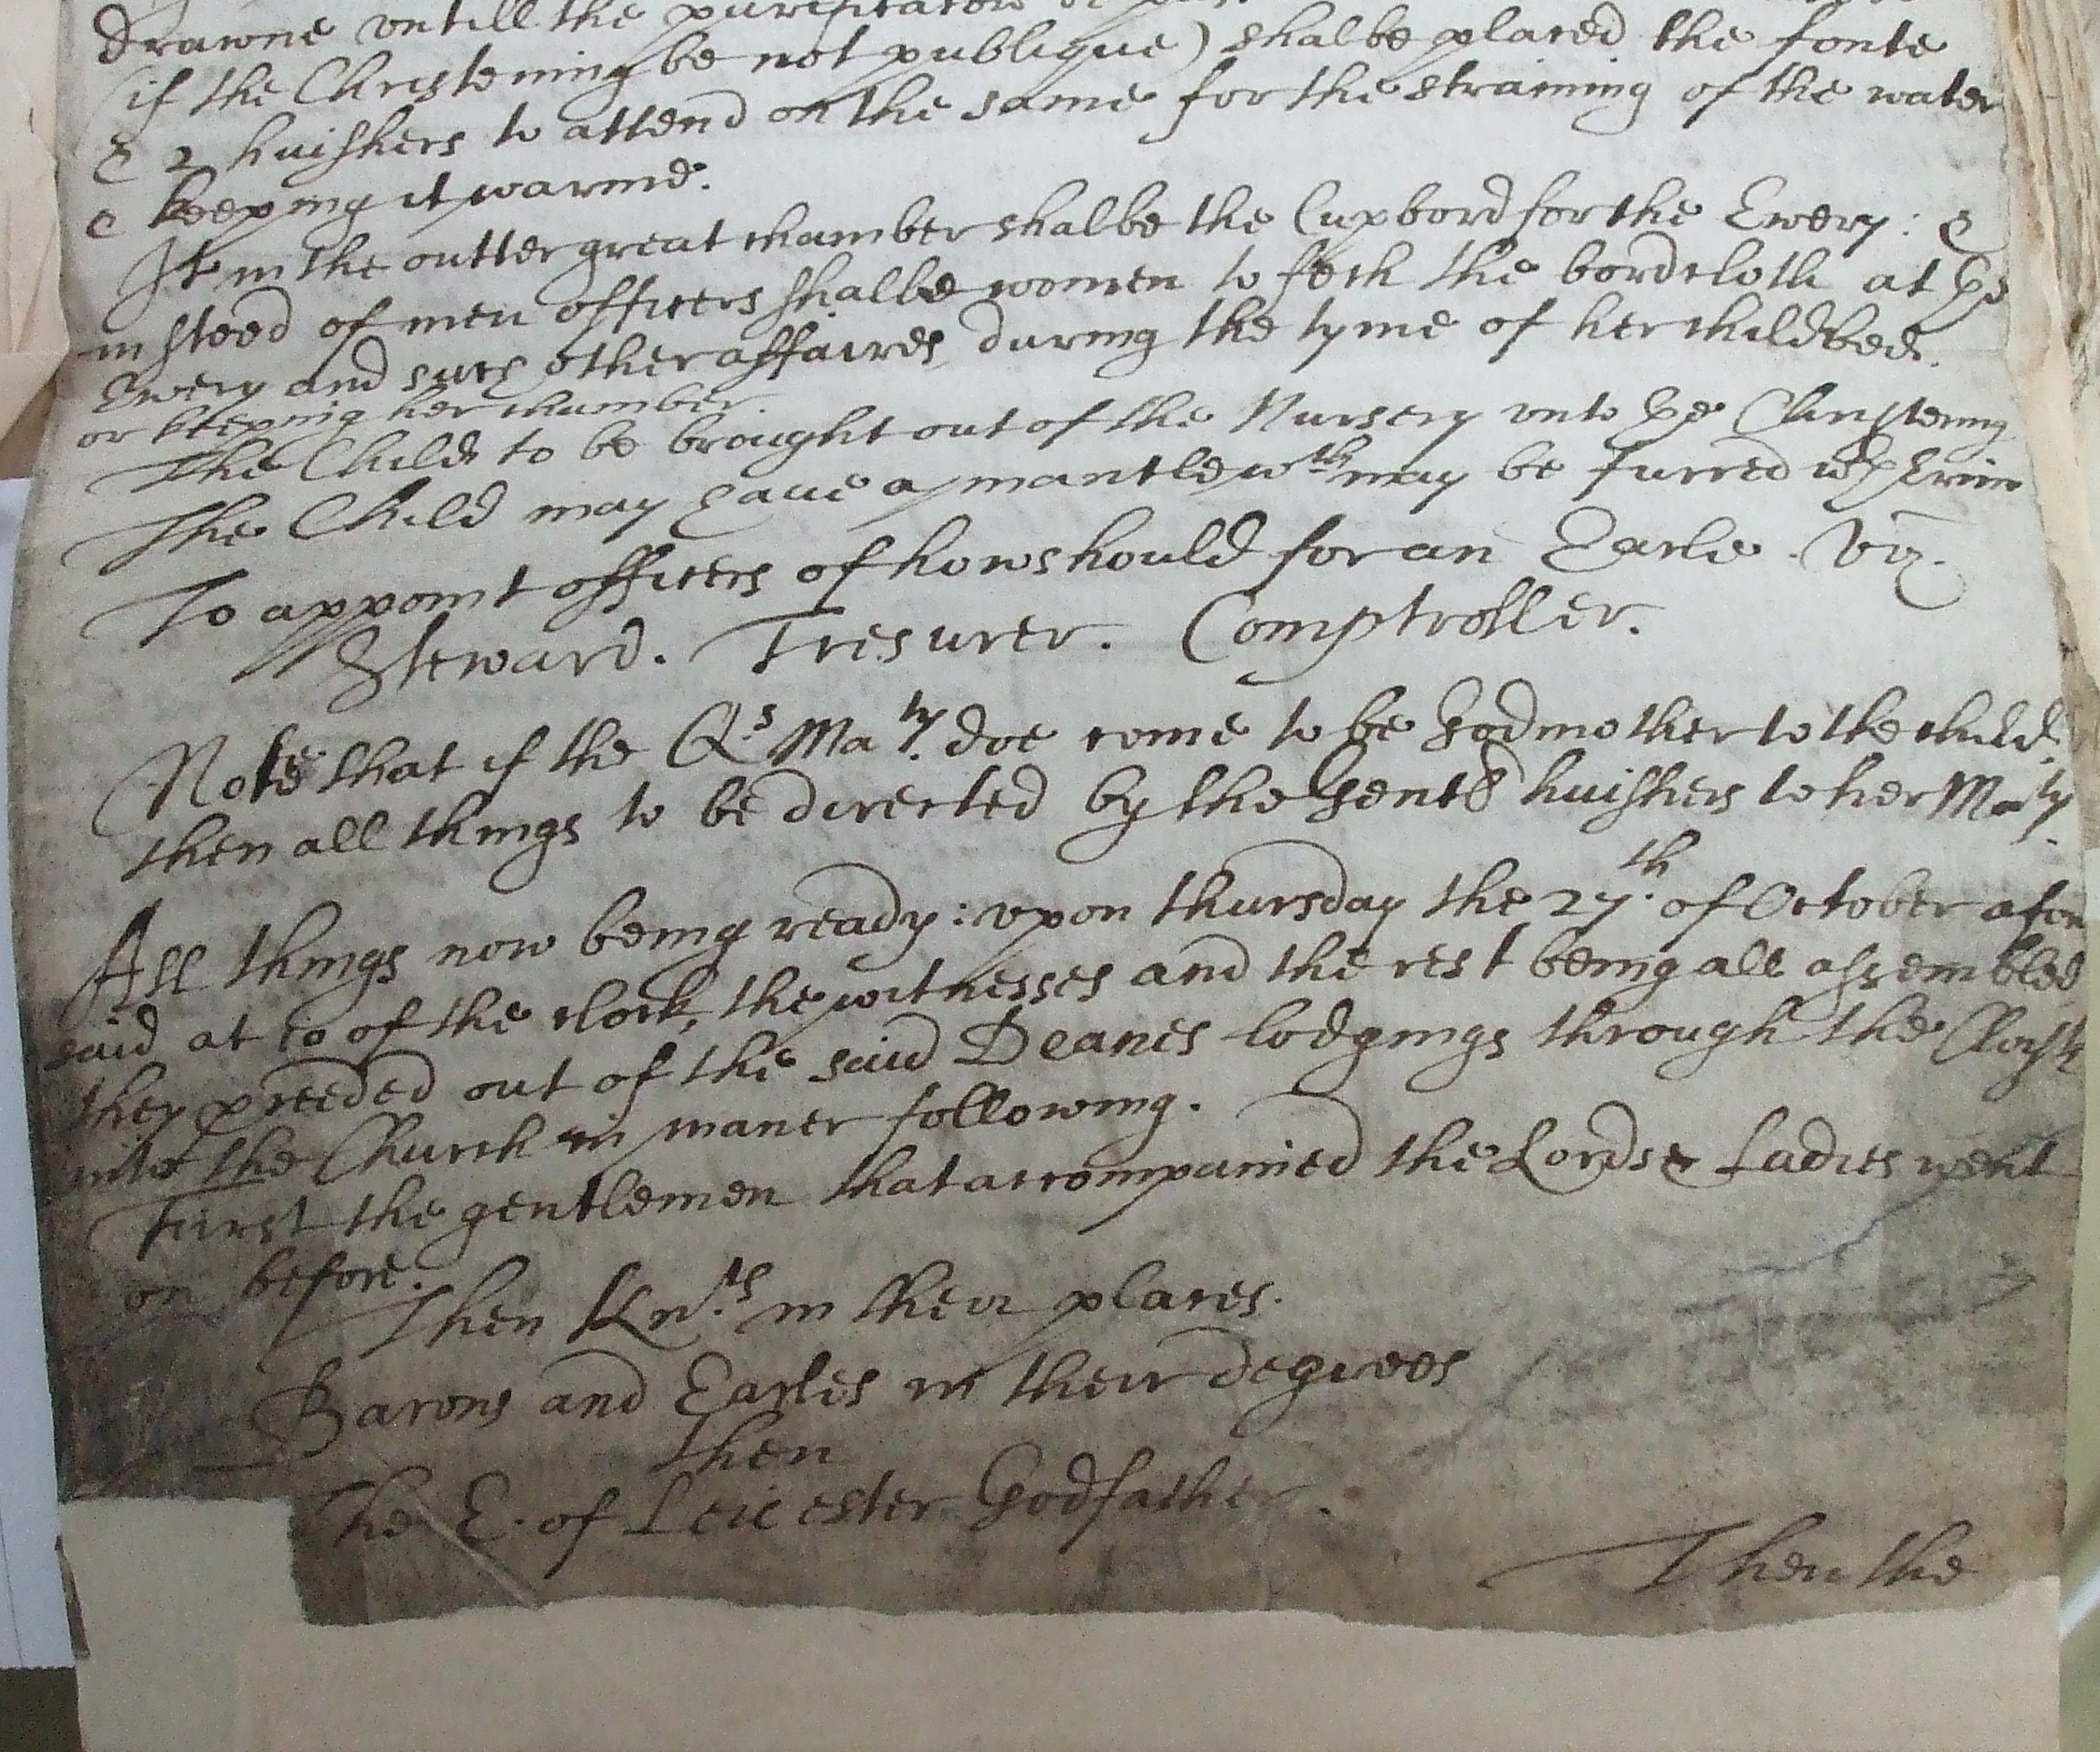 drawne untill the purificatiom
(if the Christening be not publique) shalbe placed the fonte
& 2 huishers to attend on the same for the straining of the water
& keeping it warme.
It in the outter great chamber shalbe the Cupbord for the Ewery: &
in steed of men officers shalbe women to feth the bordcloth at ye
Ewery and such other affaires during the tyme of her childbed.
or keeping her chamber.
The Child to be brought out of the Nursery unto ye Christening
The Child may have a mantle wth may be furred wth Ermin
To appoint officers of howshould for an Earle . viz.
Steward. Tresurer. Comptroller.
Note that if the Qs Maty. doe come to be Godmother to the child
then all things to be directed by the Gent huishers to her Maty.
All things now being ready: vpon thursday the 27th. of October afore
said at 10 of the clock, the witnesses and the rest being all assembled
they pceeded out of the said Deanes lodgings through the Cloyst
into the Church in maner following.
First the gentlemen that accompanied the Lords & Ladies went
on before.
Then Knts. in their places.
Barons and Earles in their degrees
then
The E. of Leicester Godfather.
Then the